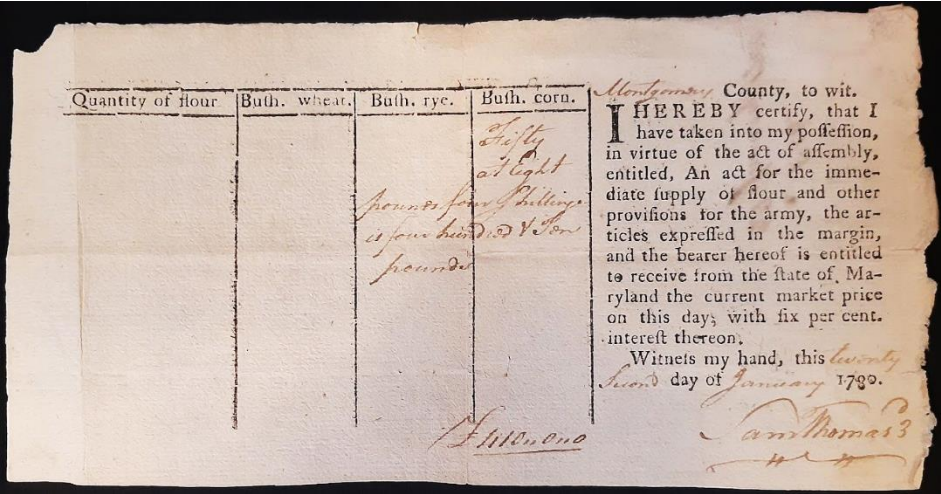 Quantity of flour
Buſh. wheat.
Buſh. rye.
Buſh. corn.
Fifty
at Eight
pounds four Shillings
is four hundred & Ten
pounds
£410..0..0
Montgomery County, to wit.
I HEREBY certify, that I
have taken into my poſſeſſion,
in virtue of the act of aſſembly,
entitled, An act for the imme-
diate ſupply of flour and other
proviſions for the army, the ar-
ticles expreſſed in the margin,
and the bearer hereof is entitled
to receive from the ſtate of Ma-
ryland the current market price
on this day, with ſix per cent.
intereſt thereon.
Witneſs my hand, this twenty
Second day of January 1780.
Sam Thomas 3d